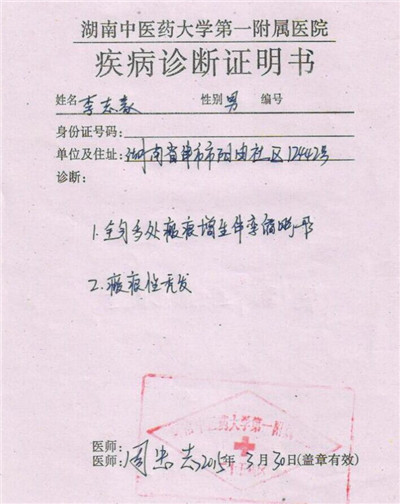 湖南中医药大学第一附属医院
疾病诊断证明书
姓名 李志 性别 男 编号
身份证号码:
单位及住址: 湖南省 市 社区12442号
诊断:
1.全身多处瘢痕增生伴挛缩畸形
2.瘢痕性秃发
药大学第一附
医师:
医师: 周忠志 2015年3月30日(盖章有效)